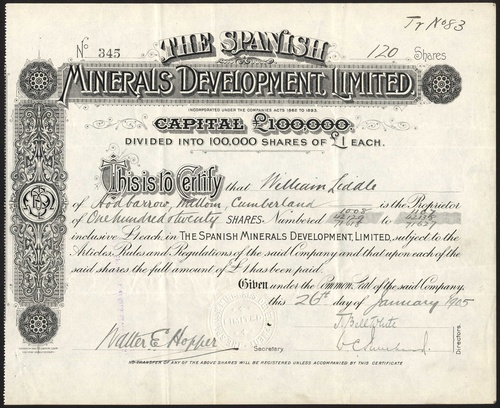 Tr No 83
No 345
120 Shares
THE SPANISH
MINERALS DEVELOPMENT, LIMITED.
INCORPORATED UNDER THE COMPANIES ACTS 1862 TO 1893.
CAPITAL £100,000,
DIVIDED INTO 100,000 SHARES OF £1 EACH.
This is to Certify that William Liddle
of Hodbarrow, Millom, Cumberland is the Proprietor
of One hundred & twenty SHARES, Numbered to
inclusive £1 each, in THE SPANISH MINERALS DEVELOPMENT, LIMITED, subject to the
Articles, Rules and Regulations of the said Company and that upon each of
the said shares the full amount of £1 has been paid.
Given under the Common Seal of the said Company,
this 26th day of January 1905
J. Bell White
Walter E. Hopper
Secretary.
Directors.
NO TRANSFER OF ANY OF THE ABOVE SHARES WILL BE REGISTERED UNLESS ACCOMPANIED BY THIS CERTIFICATE